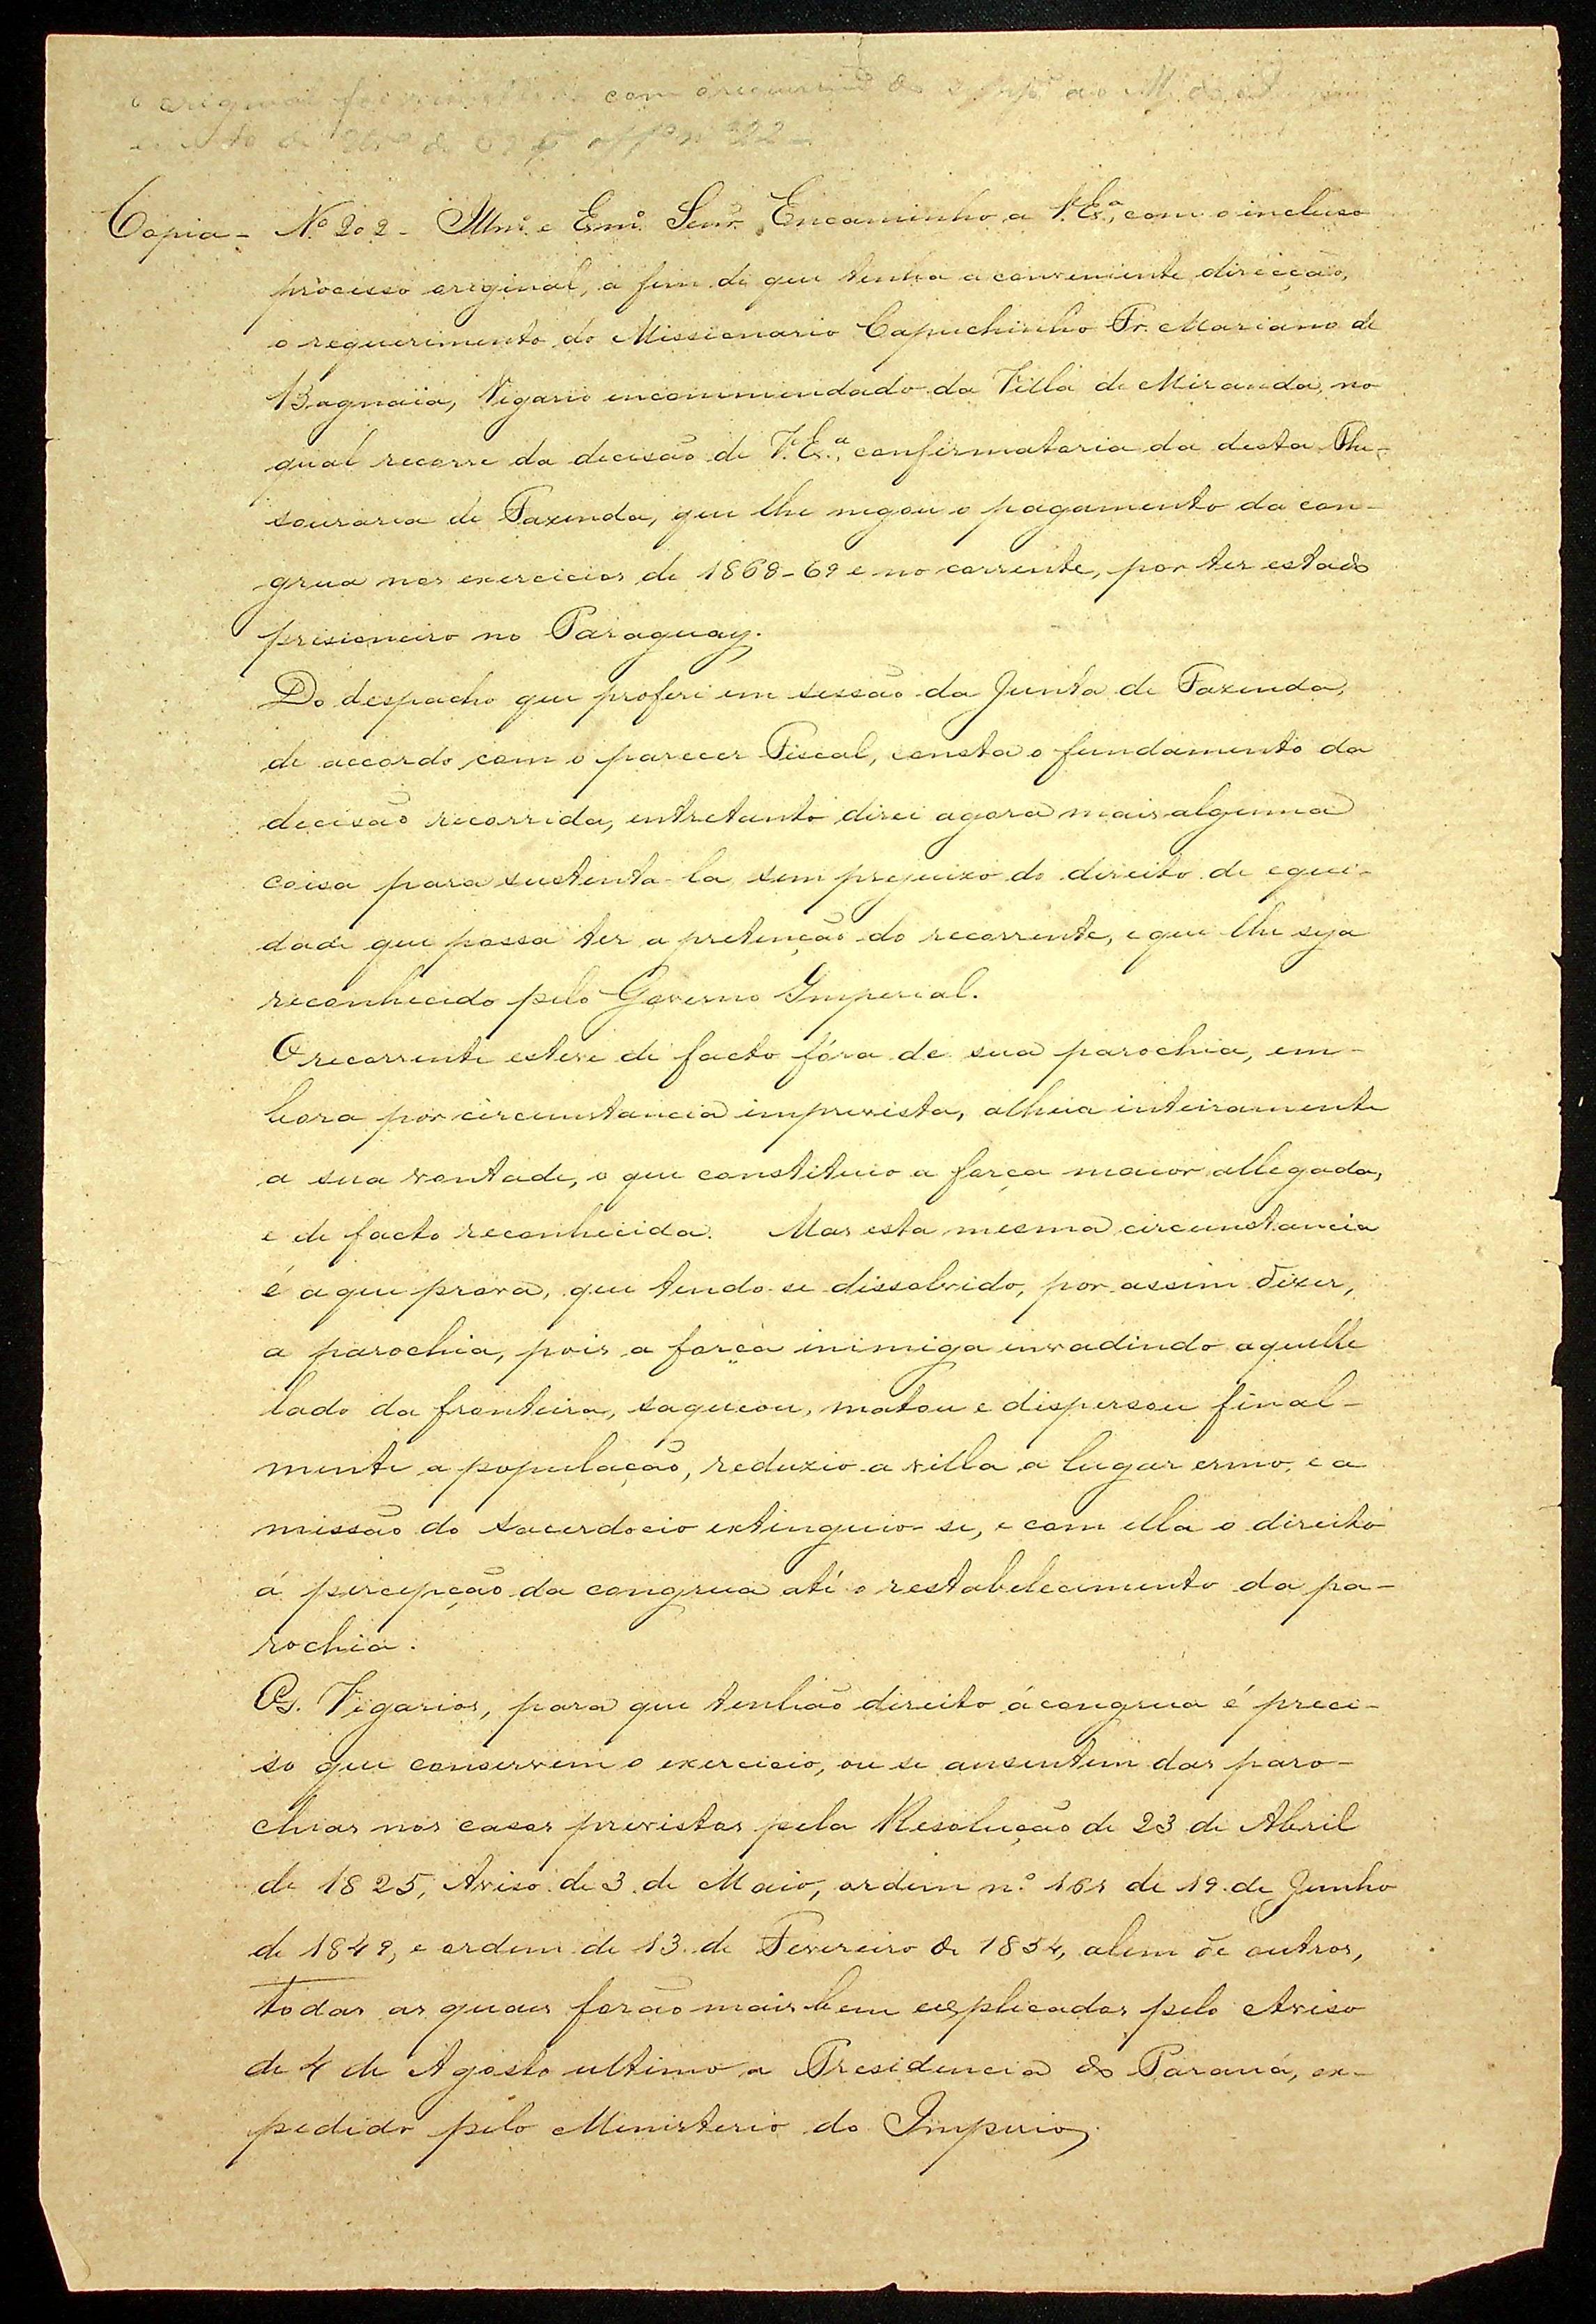 original com o requerim.to do ao M. do
de de 69 off.o n.o 322 -
Copia - N.o 202 - Illm.o e Exm.o Senr. Encaminho a V. Ex.a, com o incluso
processo original, a fim de que tenha a conveniente direcção,
o requerimento do Missionario Capuchinho Fr. Mariano de
Bagnaia, Vigario encommendado da Villa de Miranda, no
qual recorre da decisão de V. Ex.a, confirmatoria da desta The-
souraria de Fazenda, que lhe negou o pagamento da con-
grua nos exercicios de 1868-69 e no corrente, por ter estado
prisioneiro no Paraguay.
Do despacho que proferi em sessão da Junta de Fazenda,
de accordo com o parecer Fiscal, consta o fundamento da
decisão recorrida, entretanto direi agora mais alguma
coisa para sustenta-la sem prejuizo do direito de equi-
dade que possa ter a pretenção do recorrente, e que lhe seja
reconhecido pelo Governo Imperial.
O recorrente esteve de facto fóra de sua parochia, em-
bora por circumstancia imprevista, alheia inteiramente
a sua vontade, o que constituio a força maior allegada,
e de facto reconhecida. Mas esta mesma circumstancia
é a que prova, que tendo-se dissolvido, por assim dizer,
a parochia, pois a força inimiga invadindo aquelle
lado da fronteira, saqueou, matou e dispersou final-
mente a população, reduzio a villa a lugar ermo, e a
missão do sacerdocio extinguio-se, e com ella o direito
á percepção da congrua até o restabelecimento da pa-
rochia.
Os Vigarios, para que tenhão direito á congrua é preci-
so que conservem o exercicio, ou se ausentem das paro-
chias nos casos previstos pela Resolução de 23 de Abril
de 1825, Aviso de 3 de Maio, ordem n.o 161 de 19 de Junho
de 1849, e ordem de 13 de Fevereiro de 1854, alem de outros,
todas as quaes forão mais bem explicadas pelo Aviso
de 4 de Agosto ultimo a Presidencia do Paraná, ex-
pedido pelo Ministerio do Imperio,